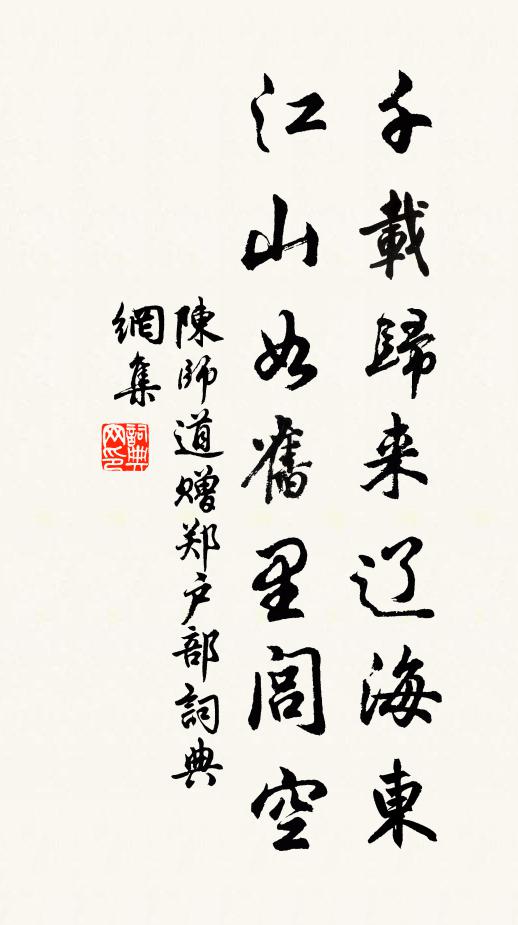 千載歸来辽海東
江山如舊里閭空
陳師道赠郑户部詞典
網集
詞典网印